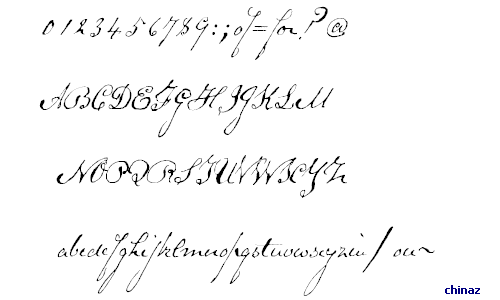 0123456789:;of=for!?@
ABCDEFGHIJKLM
NOPQRSTUVWXYZ
abcdefghijklmnopqrstuvwxyz
chinaz